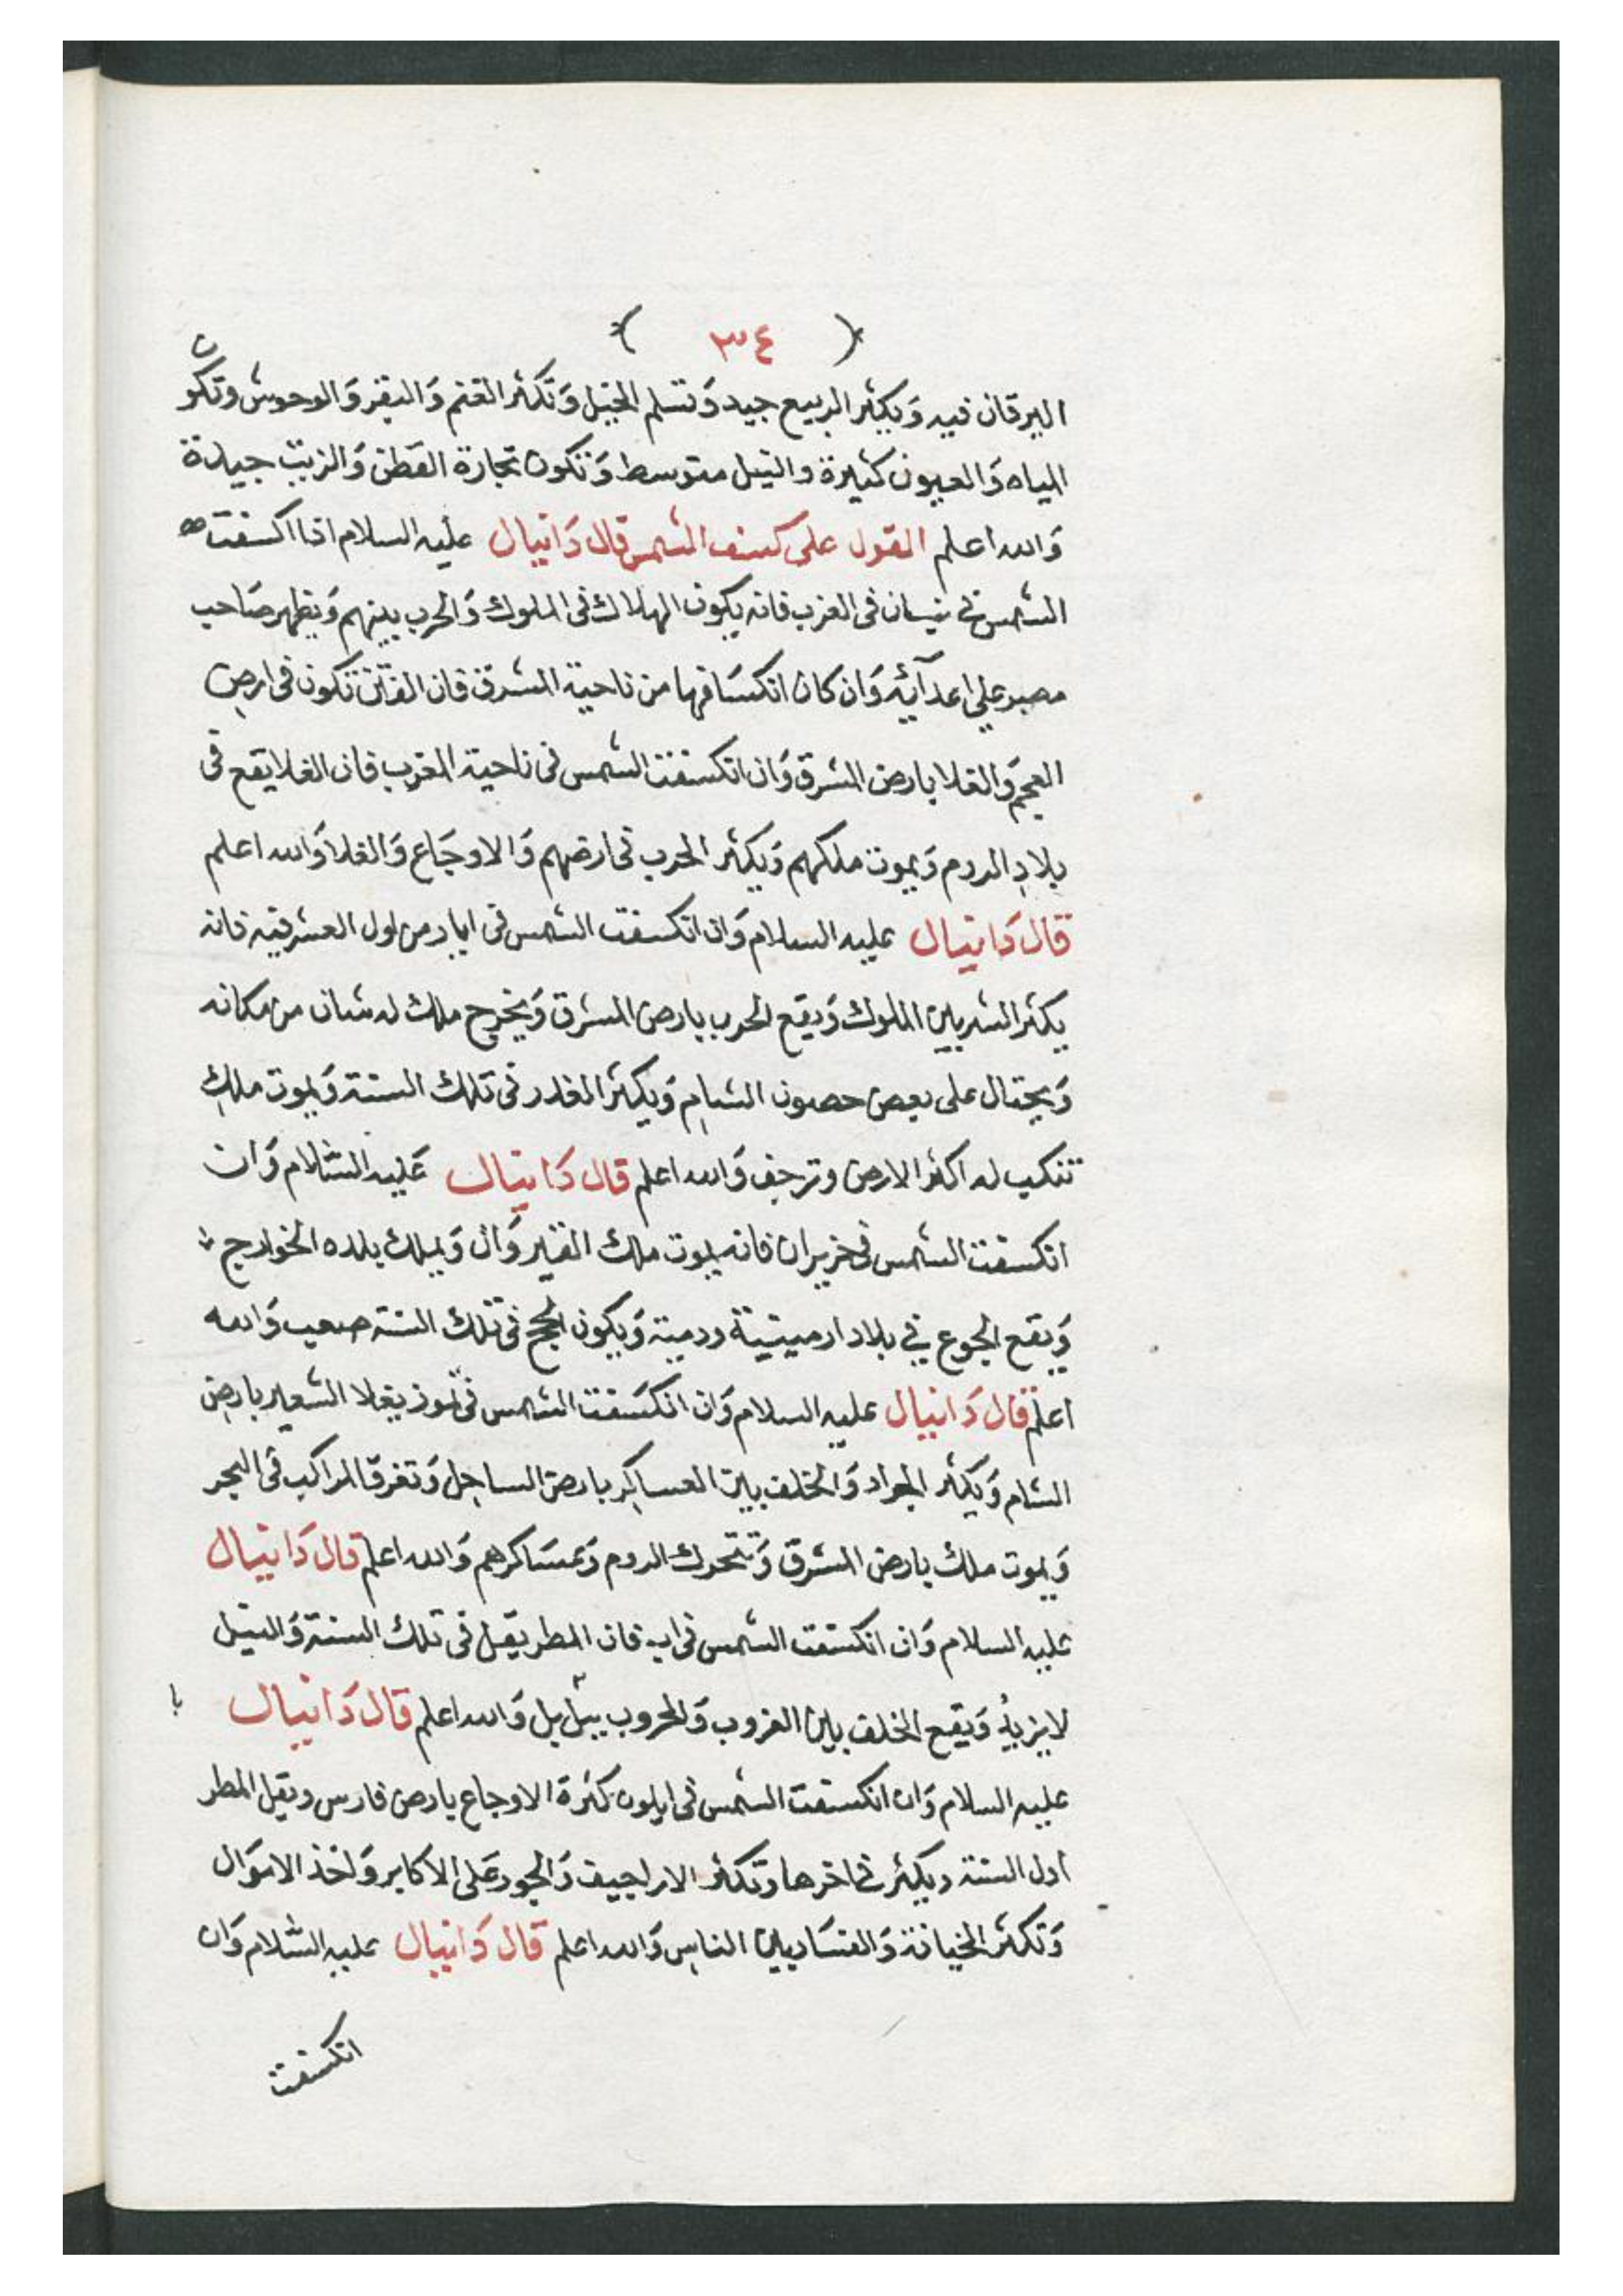 ( ٣٤ )
اليرقان فيه وَيكثر الربيع جيد وَتسلم الخيل وَتكثر الغنم وَالبقر وَالوحوش وتكون
المياه وَالعيون كثيرة والنيل متوسط وَتكون تجارة القطن وَالزيت جيدة
وَالله اعلم القول على كسف الشمس قال دَانيال عليه السلام اذا اكسفت
الشمس في نيسان فى الغرب فانه يكون الهلاك فى الملوك وَالحرب بينهم وَيظهر صَاحب
مصر علي اعدآئه وَان كان انكسَافها من ناحية المشرق فان الفتن تكون فى ارض
العجم وَالغلا بارض المشرق وَان انكسفت الشمس فى ناحية المغرب فان الغلا يقع فى
بلاد الروم وَيموت ملكهم وَيكثر الحرب فى ارضهم وَالاوجَاع وَالغلا وَالله اعلم
قال دَانيال عليه السلام وَان انكسفت الشمس فى ايار من اول العشر فيه فانه
يكثر الشر بين الملوك وَيقع الحرب بارض المشرق وَيخرج ملك له شان من مكانه
وَيحتال على بعض حصون الشام وَيكثر الغدر فى تلك السنة وَيموت ملك
تنكب له اكثر الارض وترجف وَالله اعلم قال دَانيال عَليه السَّلام وَان
انكسفت الشمس فى حزيران فانه يموت ملك القيروَان وَيملك بلده الخوارج
وَيقع الجوع في بلاد ارمينية ورمية وَيكون الحج فى تلك السنة صعب وَالله
اعلم قال دَانيال عليه السلام وَان انكسَفت الشمس فى تموز يغلا الشعير بارض
الشام وَيكثر الجراد وَالخلف بين العساكر بارض الساحل وَتغرق المراكب فى البحر
وَيموت ملك بارض المشرق وَتتحرك الروم وَعسَاكرهم وَالله اعلم قال دَانيال
عليه السلام وَان انكسفت الشمس فى اب فان المطر يقل فى تلك السنة وَالنيل
لا يزيد وَيقع الخلف بين العروب وَالحروب ببابل وَالله اعلم قال دَانيال
عليه السلام وَان انكسفت الشمس فى ايلون كثرة الاوجاع بارض فارس ويقل المطر
اول السنة ويكثر في اخرها وتكثر الاراجيف وَالجور عَلى الاكابر وَاخذ الاموَال
وَتكثر الخيانة وَالفسَاد بين الناس وَالله اعلم قال دَانيال عليه السَّلام وَان
انكسفت